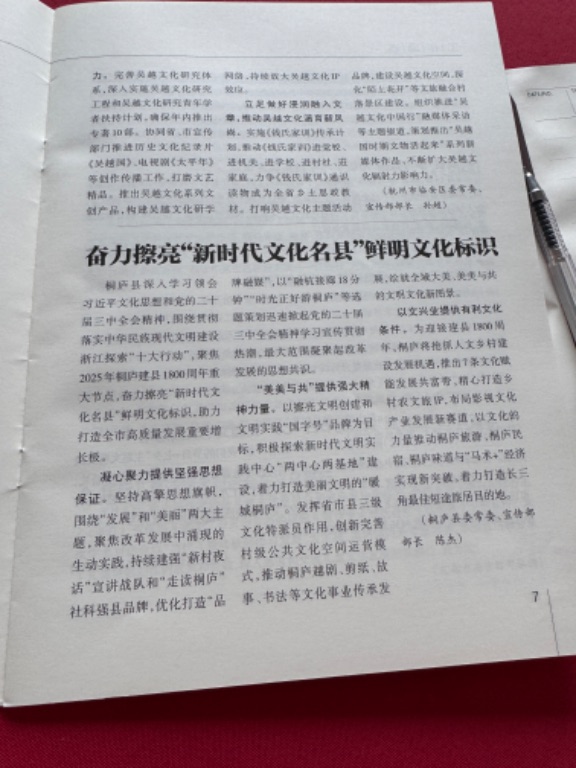 力。完善吴越文化研究体
系,深入实施吴越文化研究
工程和吴越文化研究青年学
者扶持计划,确保年内推出
专著10部。协同省、市宣传
部门推进历史文化纪录片
《吴越国》、电视剧《太平年》
等创作传播工作,打磨文艺
精品。推出吴越文化系列文
创产品,构建吴越文化研学
网络,持续放大吴越文化IP
效应。
立足做好浸润融入文
章,推动吴越文化涵育新风
尚。实施《钱氏家训》传承计
划,推动《钱氏家训》进党校、
进机关、进学校、进村社、进
家庭,力争《钱氏家训》通识
读物成为全省乡土思政教
材。打响吴越文化主题活动
品牌,建设吴越文化空间,深
化“陌上花开”等文旅融合村
落景区建设。组织推进“吴
越文化中国行”融媒体采访
等主题报道,策划推出“吴越
国时期文物活起来”系列新
媒体作品,不断扩大吴越文
化辐射力影响力。
(杭州市临安区委常委、
宣传部部长 孙超)
奋力擦亮“新时代文化名县”鲜明文化标识
桐庐县深入学习领会
习近平文化思想和党的二十
届三中全会精神,围绕贯彻
落实中华民族现代文明建设
浙江探索“十大行动”,聚焦
2025年桐庐建县1800周年重
大节点,奋力擦亮“新时代文
化名县”鲜明文化标识,助力
打造全市高质量发展重要增
长极。
凝心聚力提供坚强思想
保证。坚持高擎思想旗帜,
围绕“发展”和“美丽”两大主
题,聚焦改革发展中涌现的
生动实践,持续建强“新村夜
话”宣讲战队和“走读桐庐”
社科强县品牌,优化打造“品
牌融媒”,以“融杭接廊18分
钟”“时光正好游桐庐”等选
题策划迅速掀起党的二十届
三中全会精神学习宣传贯彻
热潮,最大范围凝聚起改革
发展的思想共识。
“美美与共”提供强大精
神力量。以擦亮文明创建和
文明实践“国字号”品牌为目
标,积极探索新时代文明实
践中心“两中心两基地”建
设,着力打造美丽文明的“暖
城桐庐”。发挥省市县三级
文化特派员作用,创新完善
村级公共文化空间运营模
式,推动桐庐越剧、剪纸、故
事、书法等文化事业传承发
展,绘就全域大美、美美与共
的文明文化新图景。
以文兴业提供有利文化
条件。为迎接建县1800周
年,桐庐将抢抓人文乡村建
设发展机遇,推出7条文化赋
能发展共富带,精心打造乡
村农文旅IP,布局影视文化
产业发展新赛道,以文化的
力量推动桐庐旅游、桐庐民
宿、桐庐味道与“马术+”经济
实现新突破,着力打造长三
角最佳短途旅居目的地。
(桐庐县委常委、宣传部
部长 陈杰)
7